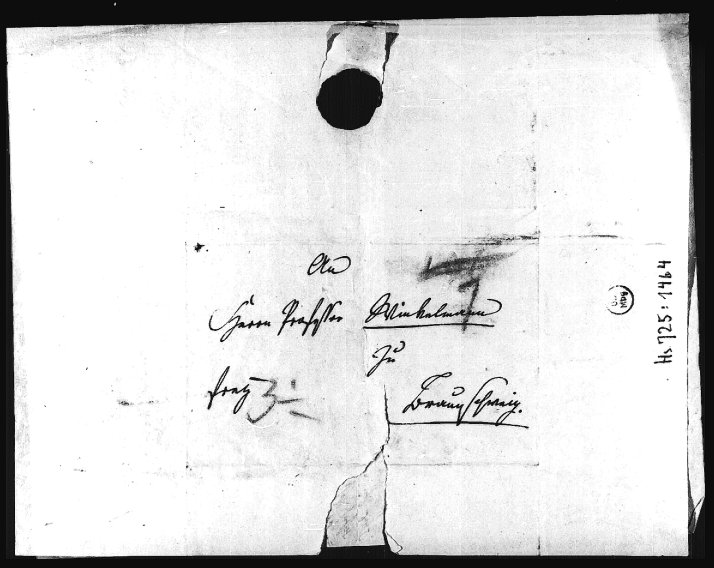 An
Herrn Professor Winkelmann
zu
Braunschweig.
Hs 725:1464